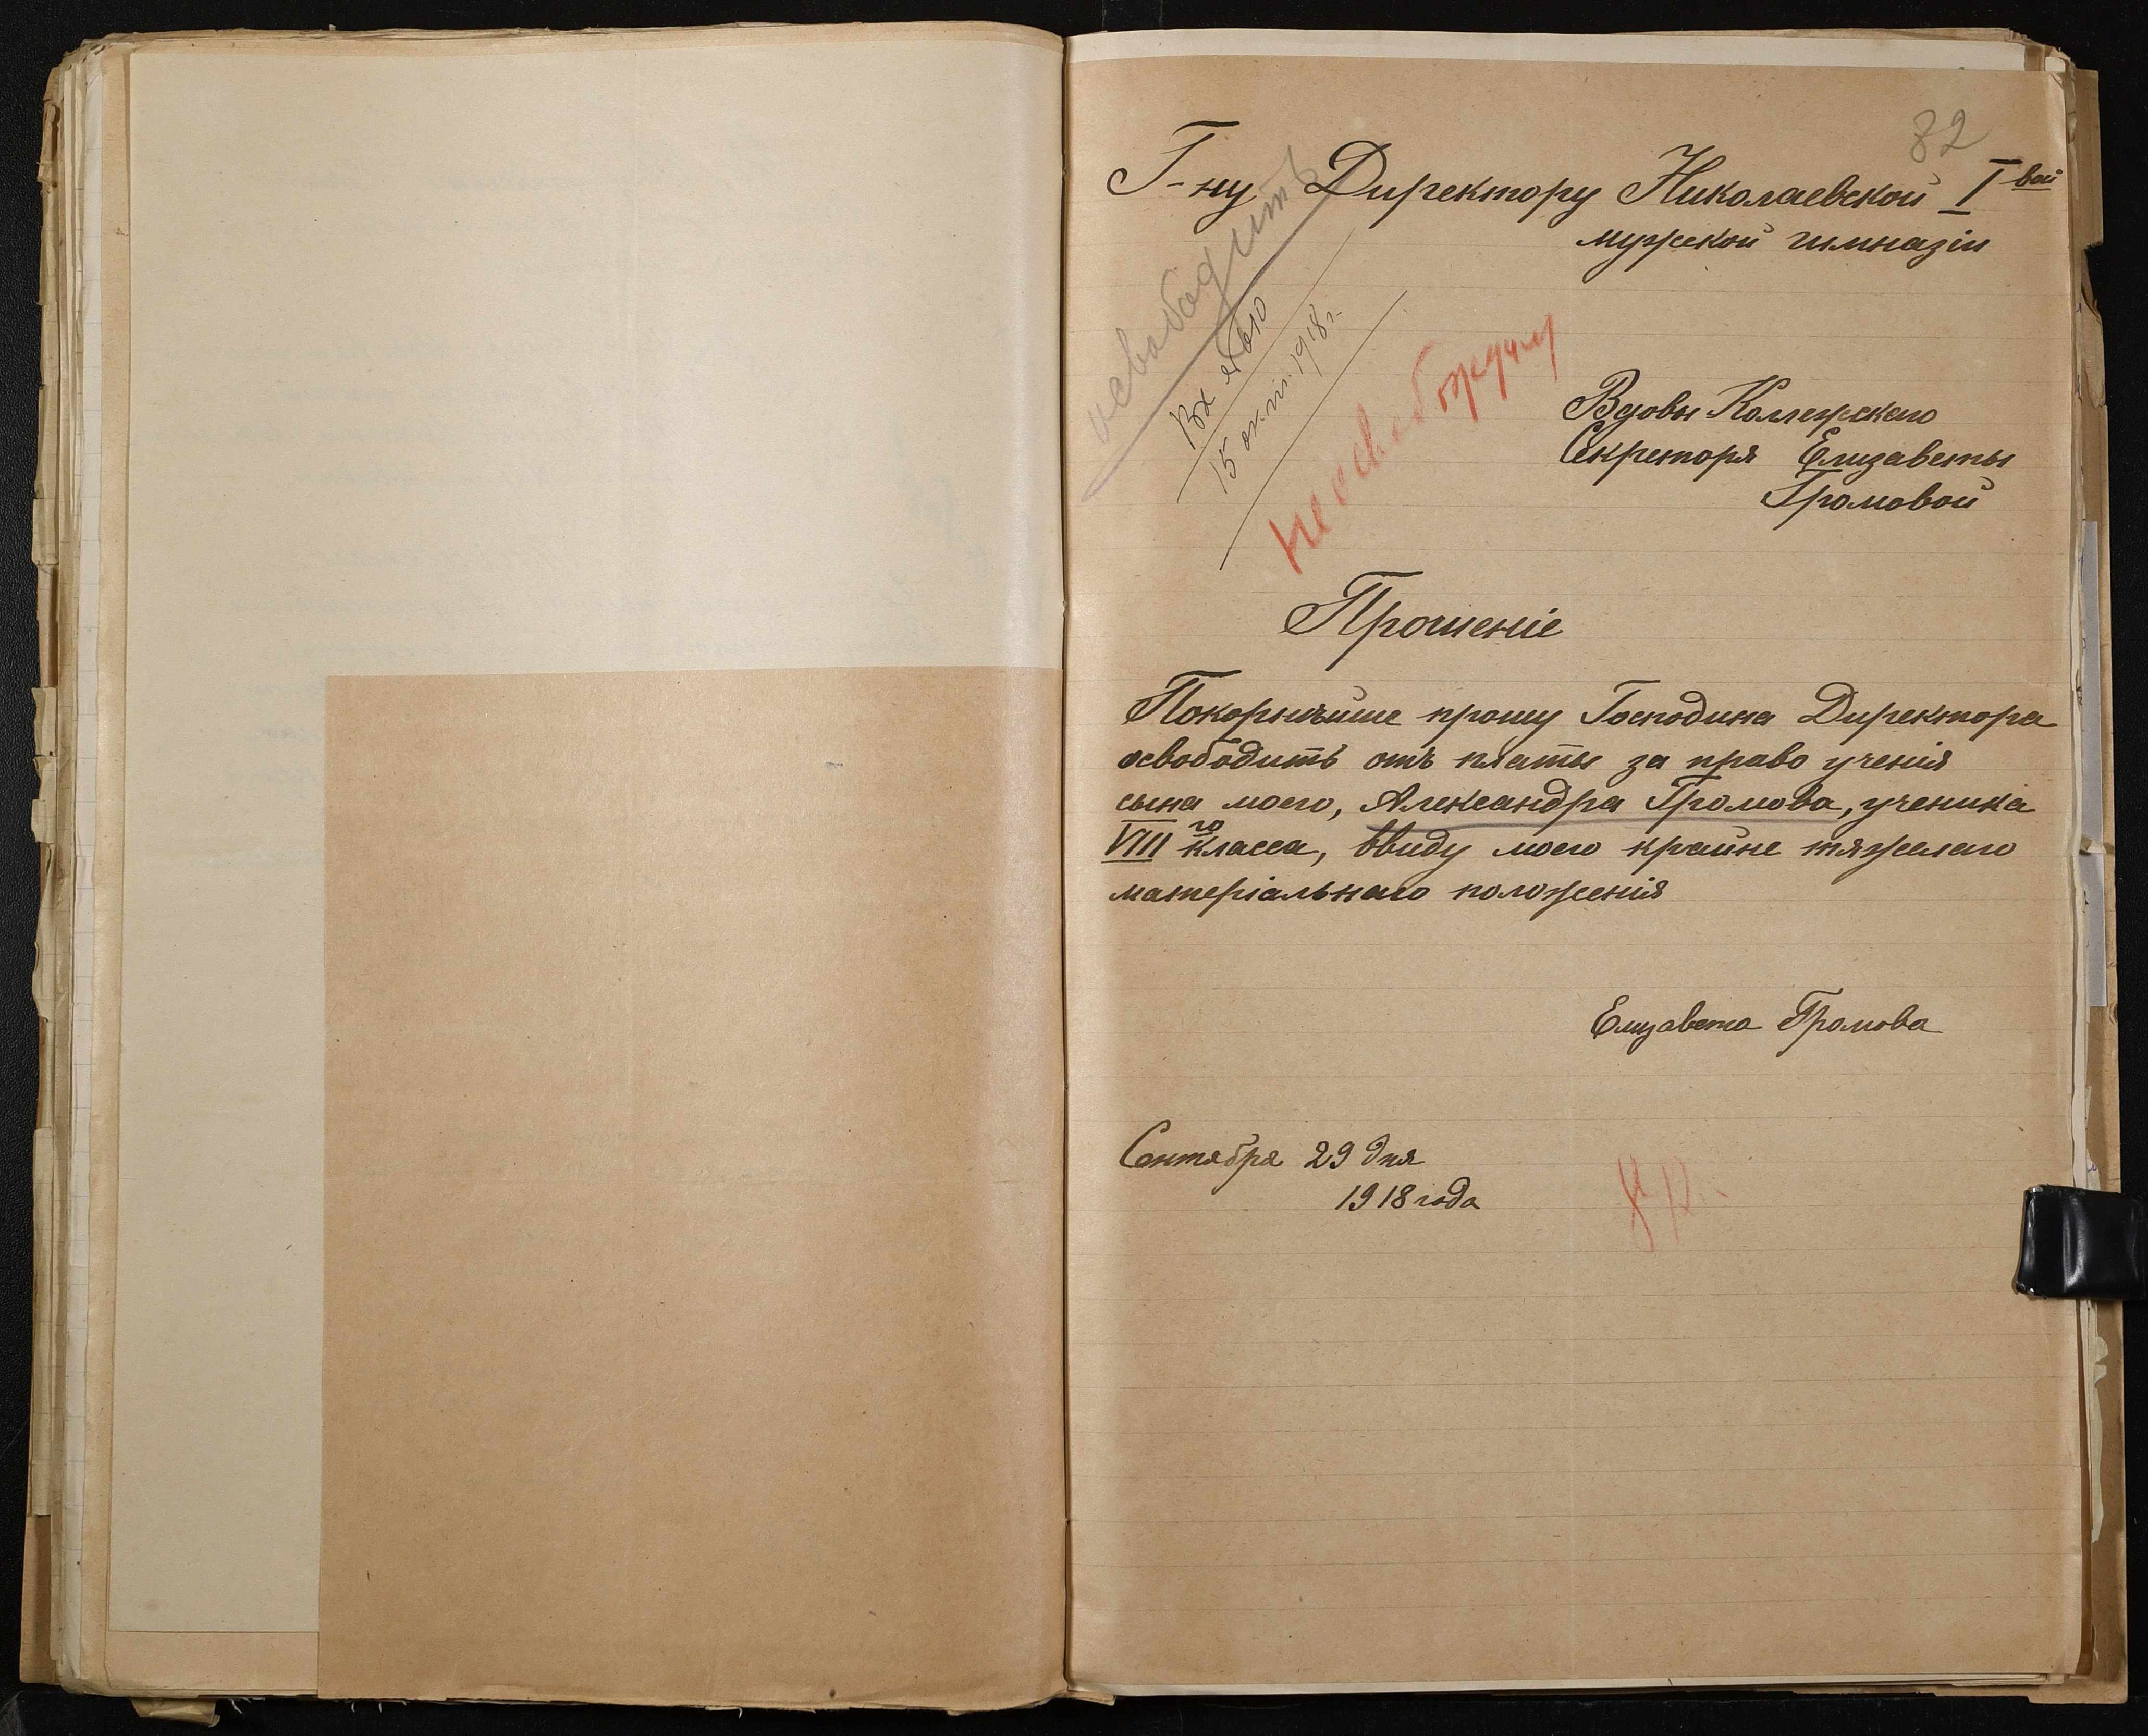 82
Г-ну Директору Николаевской I вой
мужской гимназіи
освободить
Вх № 610
15 окт. 1918 г.
не освобожден
Вдовы Коллежскаго
Секретаря Елизаветы
Громовой
Прошеніе
Покорнѣйше прошу Господина Директора
освободить отъ платы за право ученія
сына моего, Александра Громова, ученика
VIII го класса, ввиду моего крайне тяжелаго
матеріальнаго положенія
Елизавета Громова
Сентября 29 дня
1918 года